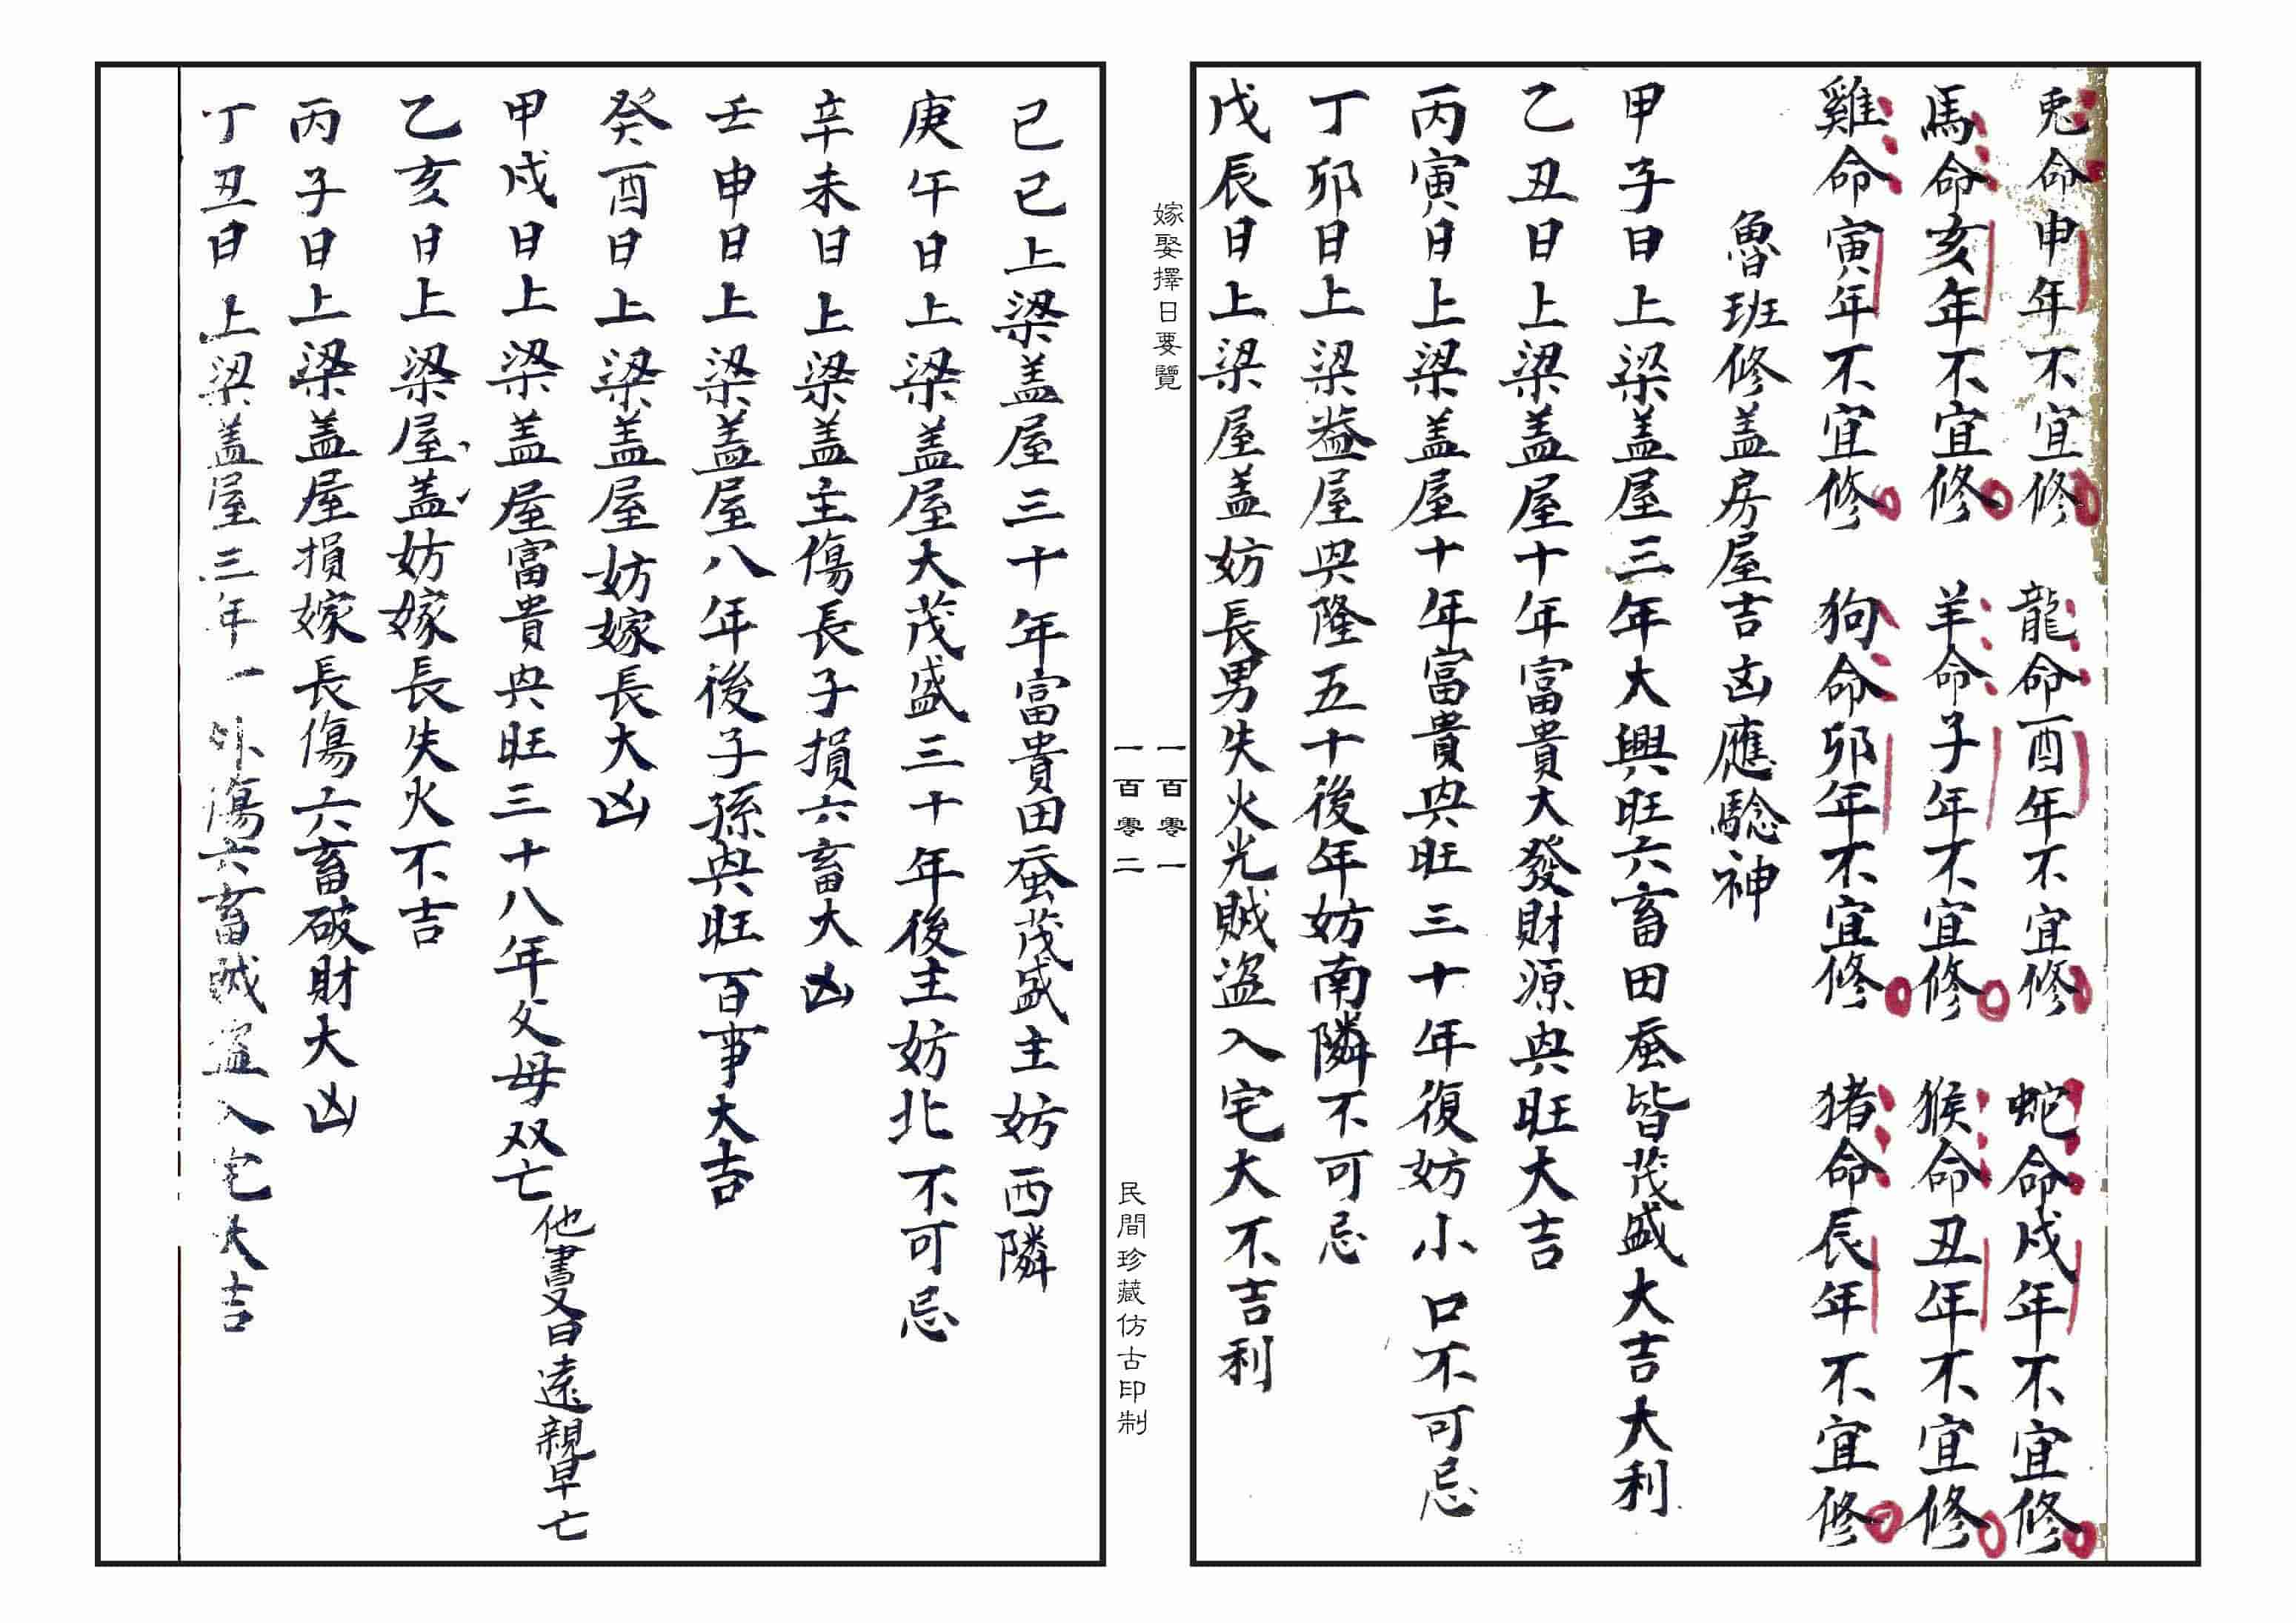 兎命申年不宜修 龍命酉年不宜修 蛇命戌年不宜修
馬命亥年不宜修 羊命子年不宜修 猴命丑年不宜修
雞命寅年不宜修 狗命卯年不宜修 猪命辰年不宜修
魯班修盖房屋吉凶應驗神
甲子日上梁盖屋三年大興旺六畜田蚕皆茂盛大吉大利
乙丑日上梁盖屋十年富貴大發財源興旺大吉
丙寅日上梁盖屋十年富貴興旺三十年復妨小口不可忌
丁卯日上梁盖屋興隆五十後年妨南隣不可忌
戊辰日上梁屋盖妨長男失火光賊盗入宅大不吉利
嫁娶擇日要覽
一百零一
一百零二
民間珍藏仿古印制
己巳上梁盖屋三十年富貴田蚕茂盛主妨西隣
庚午日上梁盖屋大茂盛三十年後主妨北不可忌
辛未日上梁盖主傷長子損六畜大凶
壬申日上梁盖屋八年後子孫興旺百事大吉
癸酉日上梁盖屋妨嫁長大凶
甲戌日上梁盖屋富貴興旺三十八年父母双亡
他書又曰遠親早亡
乙亥日上梁屋盖妨嫁長失火不吉
丙子日上梁盖屋損嫁長傷六畜破財大凶
丁丑日上梁盖屋三年一外傷六畜賊盗入宅大吉